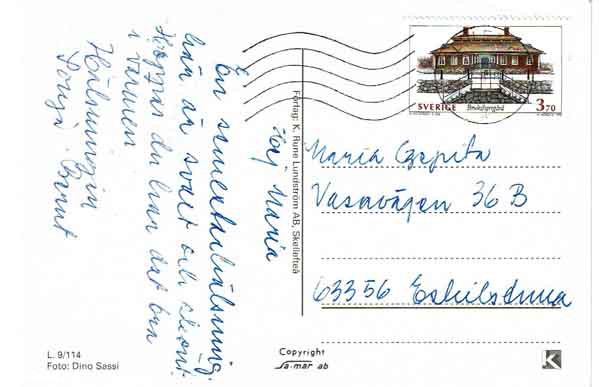 Hej Maria
En sommarhälsning.
här är svart och skönt.
Hoppas du har det bra
i värmen
Hälsningar
SVERIGE
3,70
Förlag: K. Rune Lundström AB, Skellefteå
Maria Czepita
Vasavägen 36 B
63356 Eskilstuna
L. 9/114
Foto: Dino Sassi
Copyright
sa-mar ab
K